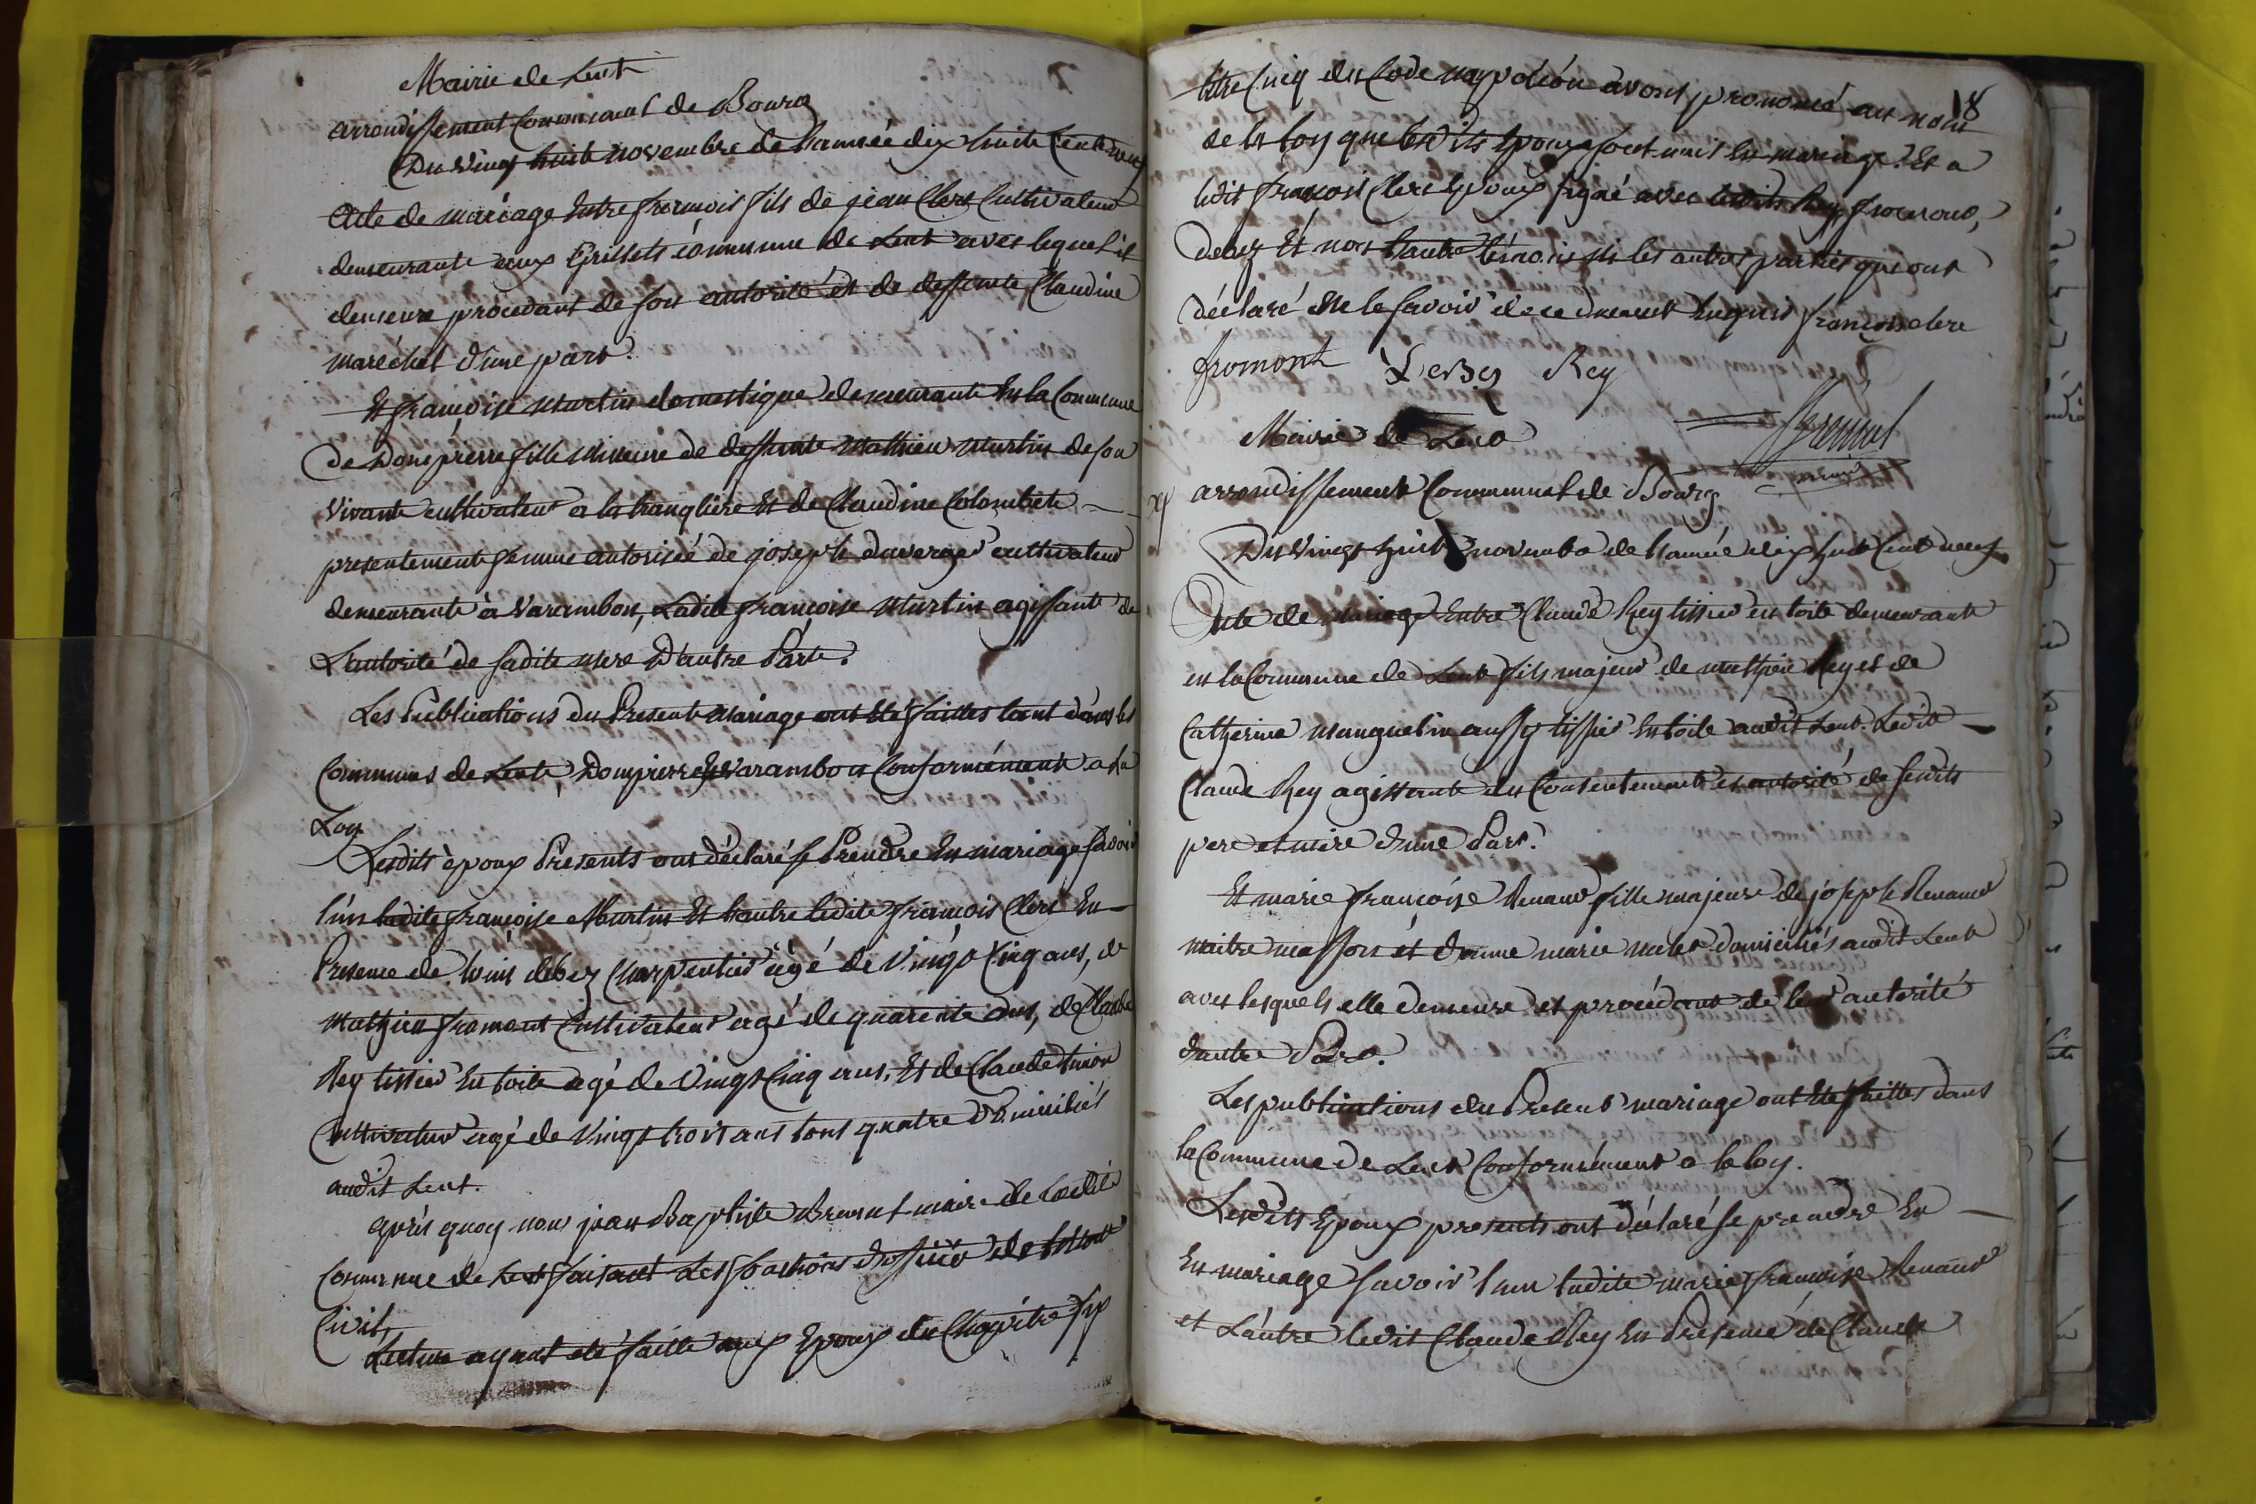 Mairie de Lent
arrondissement Communal de Bourg
Du Vingt huit novembre de l'année dix huit Cent neuf
Acte de mariage Entre francois fils de jean Clerc Cultivateur
demeurante aux Grillets commune de Lent avec lequel il
demeure procedant de son autorité et de deffunte Claudine
maréchal d'une part.
Et françoise Martin domestique demeurante En la Commune
de Dompierre fille mineure de deffunte Mathieu Martin de son
Vivant cultivateur a la tranglière Et de Claudine Colombet
presentement femme autorisée de joseph cultivateur
demeurante à Varambon, Ladite françoise Martin agissante de
L'autorité de sadite mere D'autre Part.
Les Publications du Present Mariage ont Eté faittes tant dans les
Communes de Lent, Dompierre Et Varambon Conformément a La
Loy
Lesdits époux Presents ont déclaré se Prendre En mariage savoir
l'un ladite françoise Martin Et l'autre ledit françois Clerc En
Presence de louis debez Charpentier agé de Vingt Cinq ans, de
Mathieu froment Cultivateur agé de quarente ans, de Claude
Rey tissier En toile agé de Vingt Cinq ans, Et de Claude
Cultivateur agé de Vingt trois ans tous quatre Domiciliés
audit Lent.
après quoy nous jean Baptiste maire de Ladite
Commune de Lent faisant Les fonctions d'officier de l'Etat
Civil,
Lecture ayant eté faitte aux Epoux du Chapitre six
18
titre Cinq du Code nappoleón avons prononcé au nom
de la loy que lesdits Epoux sont unis En mariage. Et a
ledit françois Clerc Epoux signé avec lesdits Rey, froment,
debez Et non l'autre témoin ni les autres parties qui ont
déclaré ne le savoir de ce duement Enquis françois clerc
fromont Debez Rey
Mairie de Lent
arrondissement Communal de Bourg
Du Vingt huit novembre de l'année dix huit Cent neuf
Acte de Mariage Entre Claude Rey tissier en toile demeurante
en la Commune de Lent fils majeur de mathieu Rey et de
Catherine Manguelin aussy tissier En toile audit Lent. Ledit
Claude Rey agissante du Consentement et autorité de sesdits
pere et mere d'une Part.
Et marie françoise Renaud fille majeure de joseph Renaud
maitre masson et d'anne marie domiciliés audit Lent
avec lesquels elle demeure et procedant de leur autorité
d'autre Part.
Les publications du Present mariage ont Eté faittes dans
la Commune de Lent Conformément a la loy.
Lesdits Epoux presents ont déclaré se prendre En
En mariage savoir l'un ladite marie françoise Renaud
et L'autre ledit Claude Rey En Présence de Claude